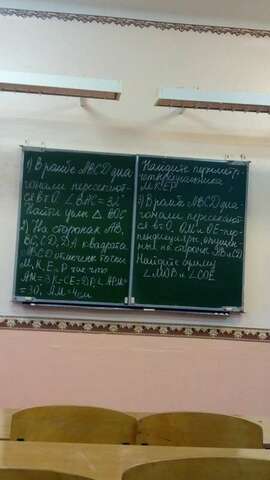 1) В ромбе ABCD диа
гонали пересекают-
ся в т.О ∠BAC=32°
Найти углы △ BOC
2) На сторонах AB,
BC, CD, DA квадрата
ABCD отмечены точки
M, K, E и P так что
AM=BK=CE=DP, ∠APM
=30°, AM=4см
Найдите периметр
четырехугольника
MKEP
3) В ромбе ABCD диа-
гонали пересекают
ся в т.О, OM и OE-пер-
пендикуляры, опущен
ные на стороны AB и CD
Найдите сумму
∠MOB и ∠COE